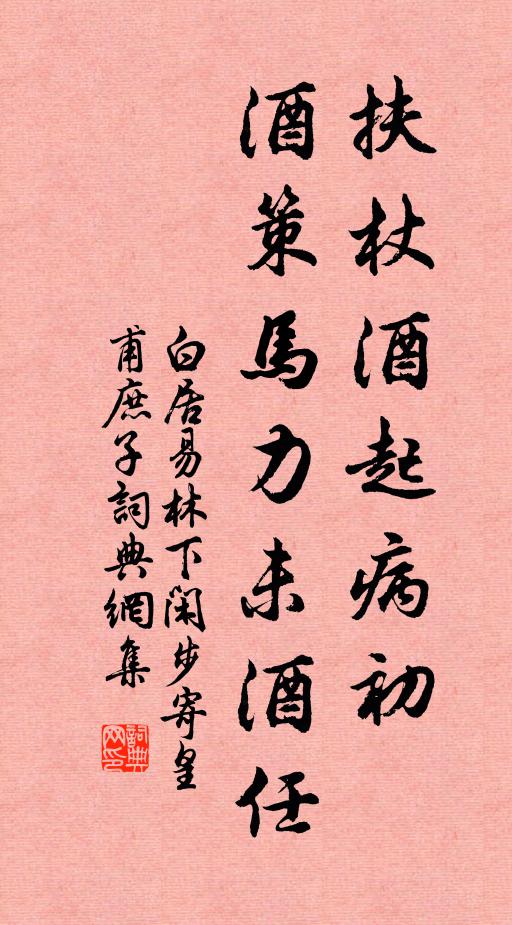 扶杖酒起病初
酒策馬力未酒任
白居易林下閑步寄皇
甫庶子詞典網集
詞典
网印